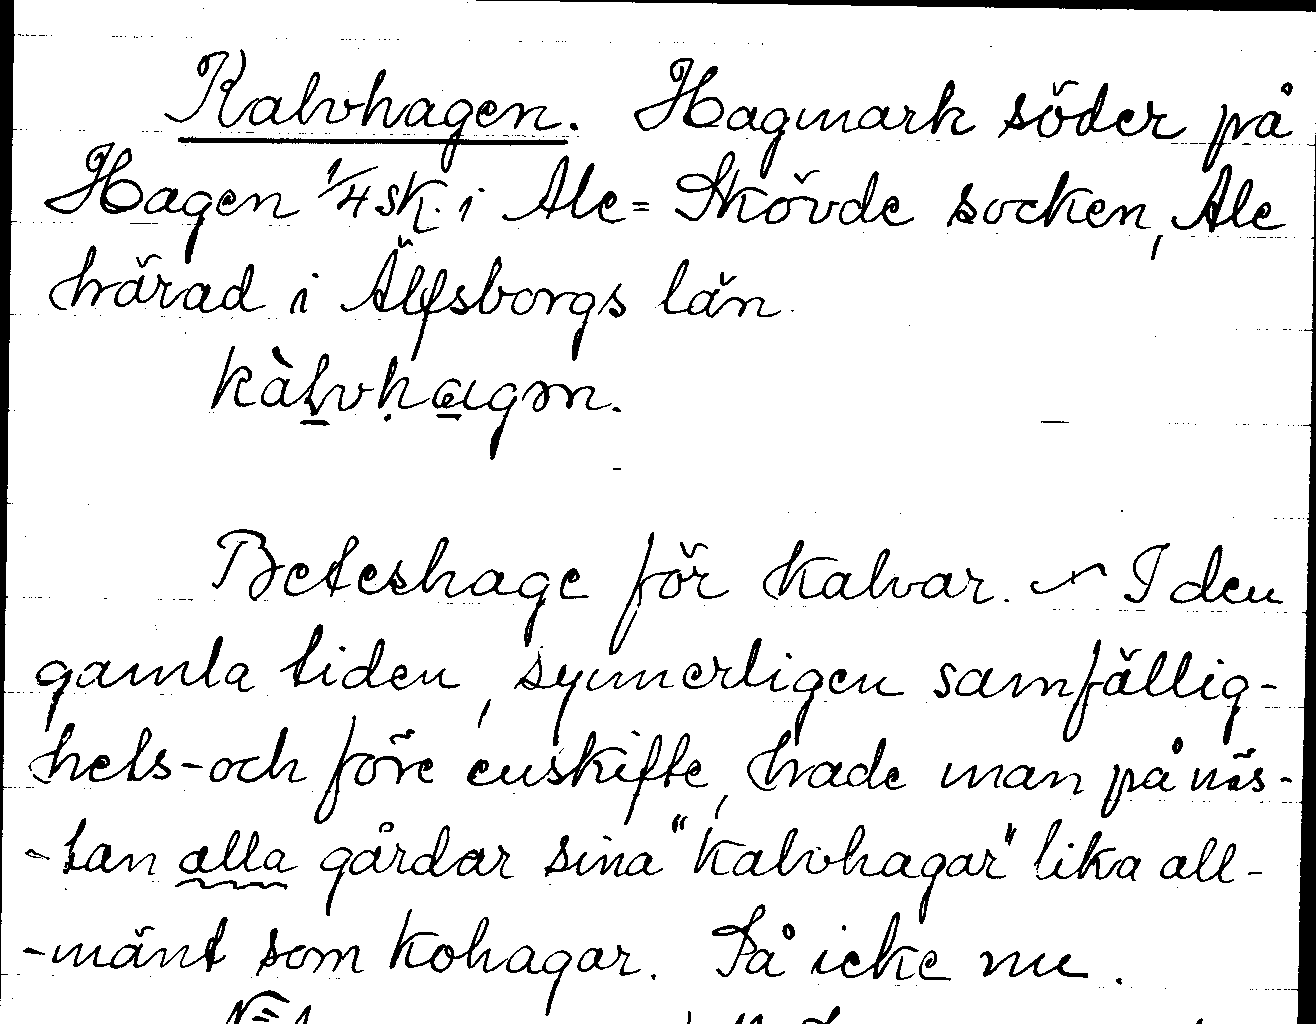 Kalvhagen. Hagmark söder på
Hagen 1/4 sk. i Ale=Skövde socken, Ale
härad i Älfsborgs län
kàlvhagən.
Beteshage för kalvar. ~ I den
gamla tiden, synnerligen samfällig-
hets-och före enskifte, hade man på näs-
-tan alla gårdar sina "kalvhagar" lika all-
-mänt som kohagar. Så icke nu.